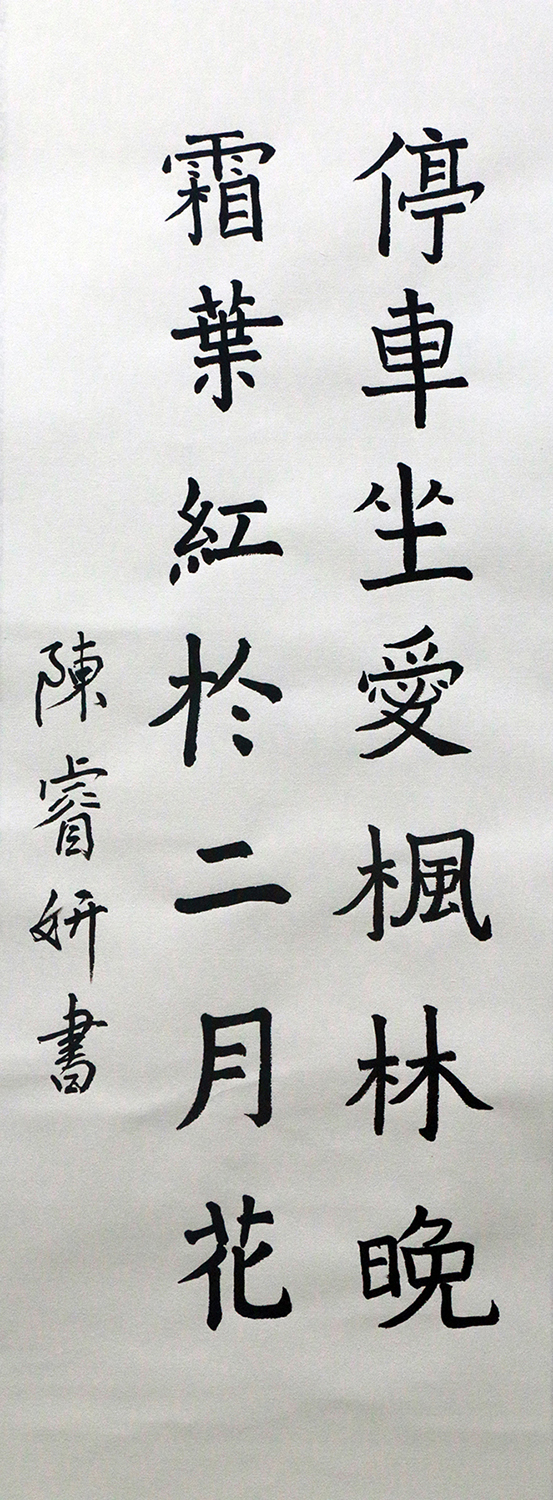 停車坐愛楓林晚
霜葉紅於二月花
陳睿妍書